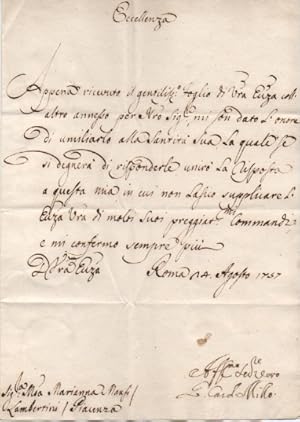 Eccellenza
Appena ricevuto il gentiliss.o foglio di Vra Ecza coll'
altro annesso per Nro Sigre mi son dato l'onore
di umiliarlo alla Santità Sua la quale se
si degnerà di risponderle unirò la risposta
a questa mia in cui non lascio supplicare l'
Ecza Vra di molti suoi preggiat.mi Commandi,
e mi confermo sempre più
D Vra Ecza Roma 24. Agosto 1757
Sig.ra Mea Marianna
Lambertini / Piacenza
Aff.mo
Card. Millo